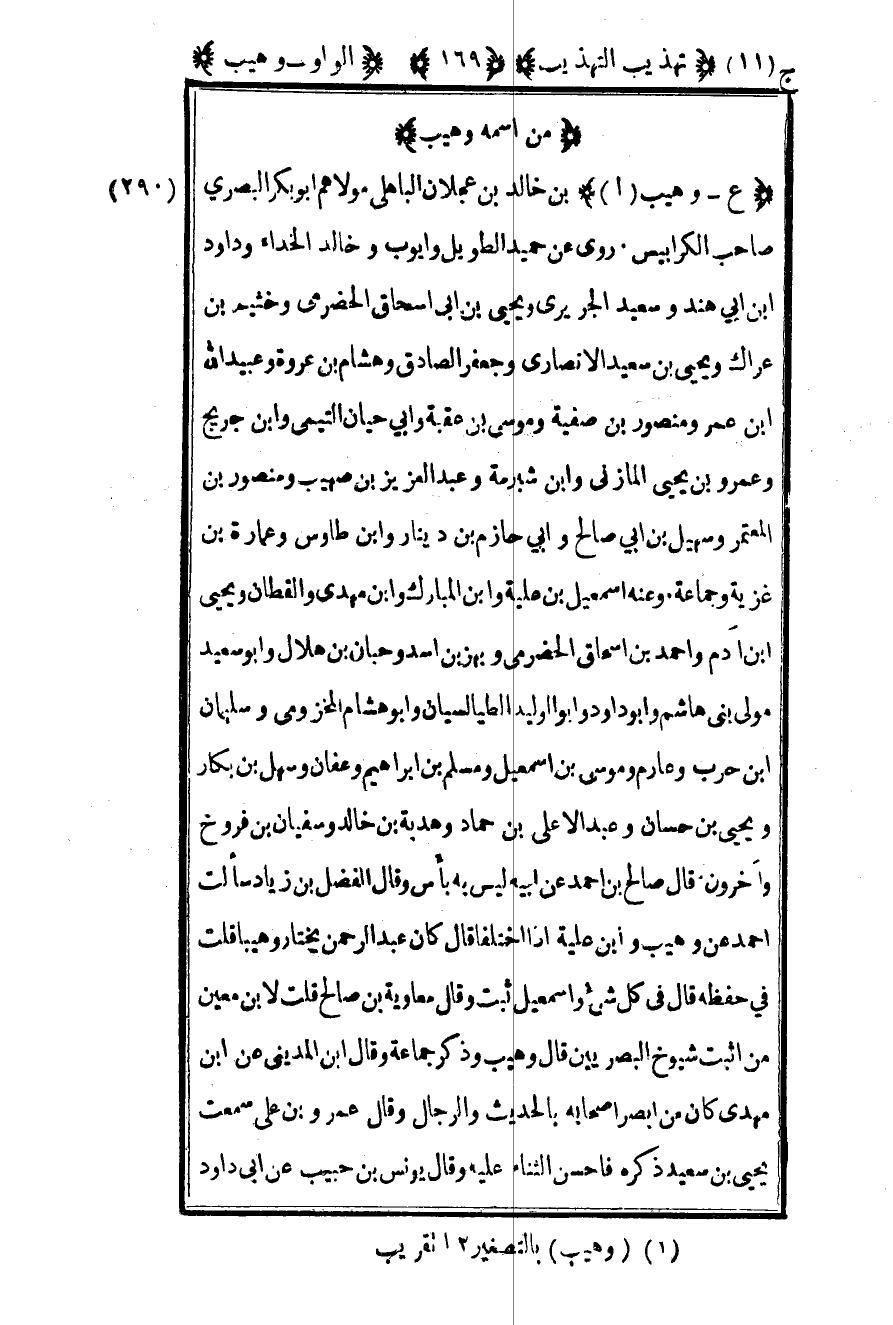 ج (١١) ﴿ تهذيب التهذيب ﴾ ﴿ ١٦٩ ﴾ ﴿ الواو ـ وهيب ﴾
﴿ من اسمه وهيب ﴾
﴿ ع ـ وهيب (١) ﴾ بن خالد بن عجلان الباهلى مولاهم ابوبكر البصري (٢٩٠)
صاحب الكرابيس · روى عن حميد الطويل وايوب و خالد الخذاء وداود
ابن ابي هند و سعيد الجريرى ويحيى بن ابى اسحاق الحضرمى وخثيم بن
عراك ويحيى بن سعيد الانصارى وجعفر الصادق وهشام بن عروة وعبيدالله
ابن عمر ومنصور بن صفية وموسى بن عقبة وابي حيان التيمى وابن جريج
وعمرو بن يحيى المازنى وابن شبرمة وعبد العزيز بن صهيب ومنصور بن
المعتمر وسهيل بن ابي صالح و ابي حازم بن دينار وابن طاوس وعمارة بن
غزية وجماعة · وعنه اسمعيل بن علية وابن المبارك وابن مهدى والقطان ويحيى
ابن آدم واحمد بن اسحاق الحضرمى و بهز بن اسد وحبان بن هلال وابو سعيد
مولى بنى هاشم وابو داود وابو الوليد الطيالسيان وابو هشام المخزومى و سليمان
ابن حرب وعارم وموسى بن اسمعيل ومسلم بن ابراهيم وعفان وسهل بن بكار
و يحيى بن حسان و عبد الاعلى بن حماد وهدبة بن خالد وسفيان بن فروخ
وآخرون · قال صالح بن احمد عن ابيه ليس به بأس وقال الفضل بن زياد سألت
احمد عن وهيب و ابن علية اذا اختلفا قال كان عبد الرحمن يختار وهيبا قلت
في حفظه قال فى كل شئ واسمعيل ثبت وقال معاوية بن صالح قلت لابن معين
من اثبت شيوخ البصريين قال وهيب وذكر جماعة وقال ابن المدينى عن ابن
مهدى كان من ابصر اصحابه بالحديث والرجال وقال عمرو بن على سمعت
يحيى بن سعيد ذكره فاحسن الثناء عليه وقال يونس بن حبيب عن ابى داود
(١) (وهيب) بالتصغير ١٢ تقريب